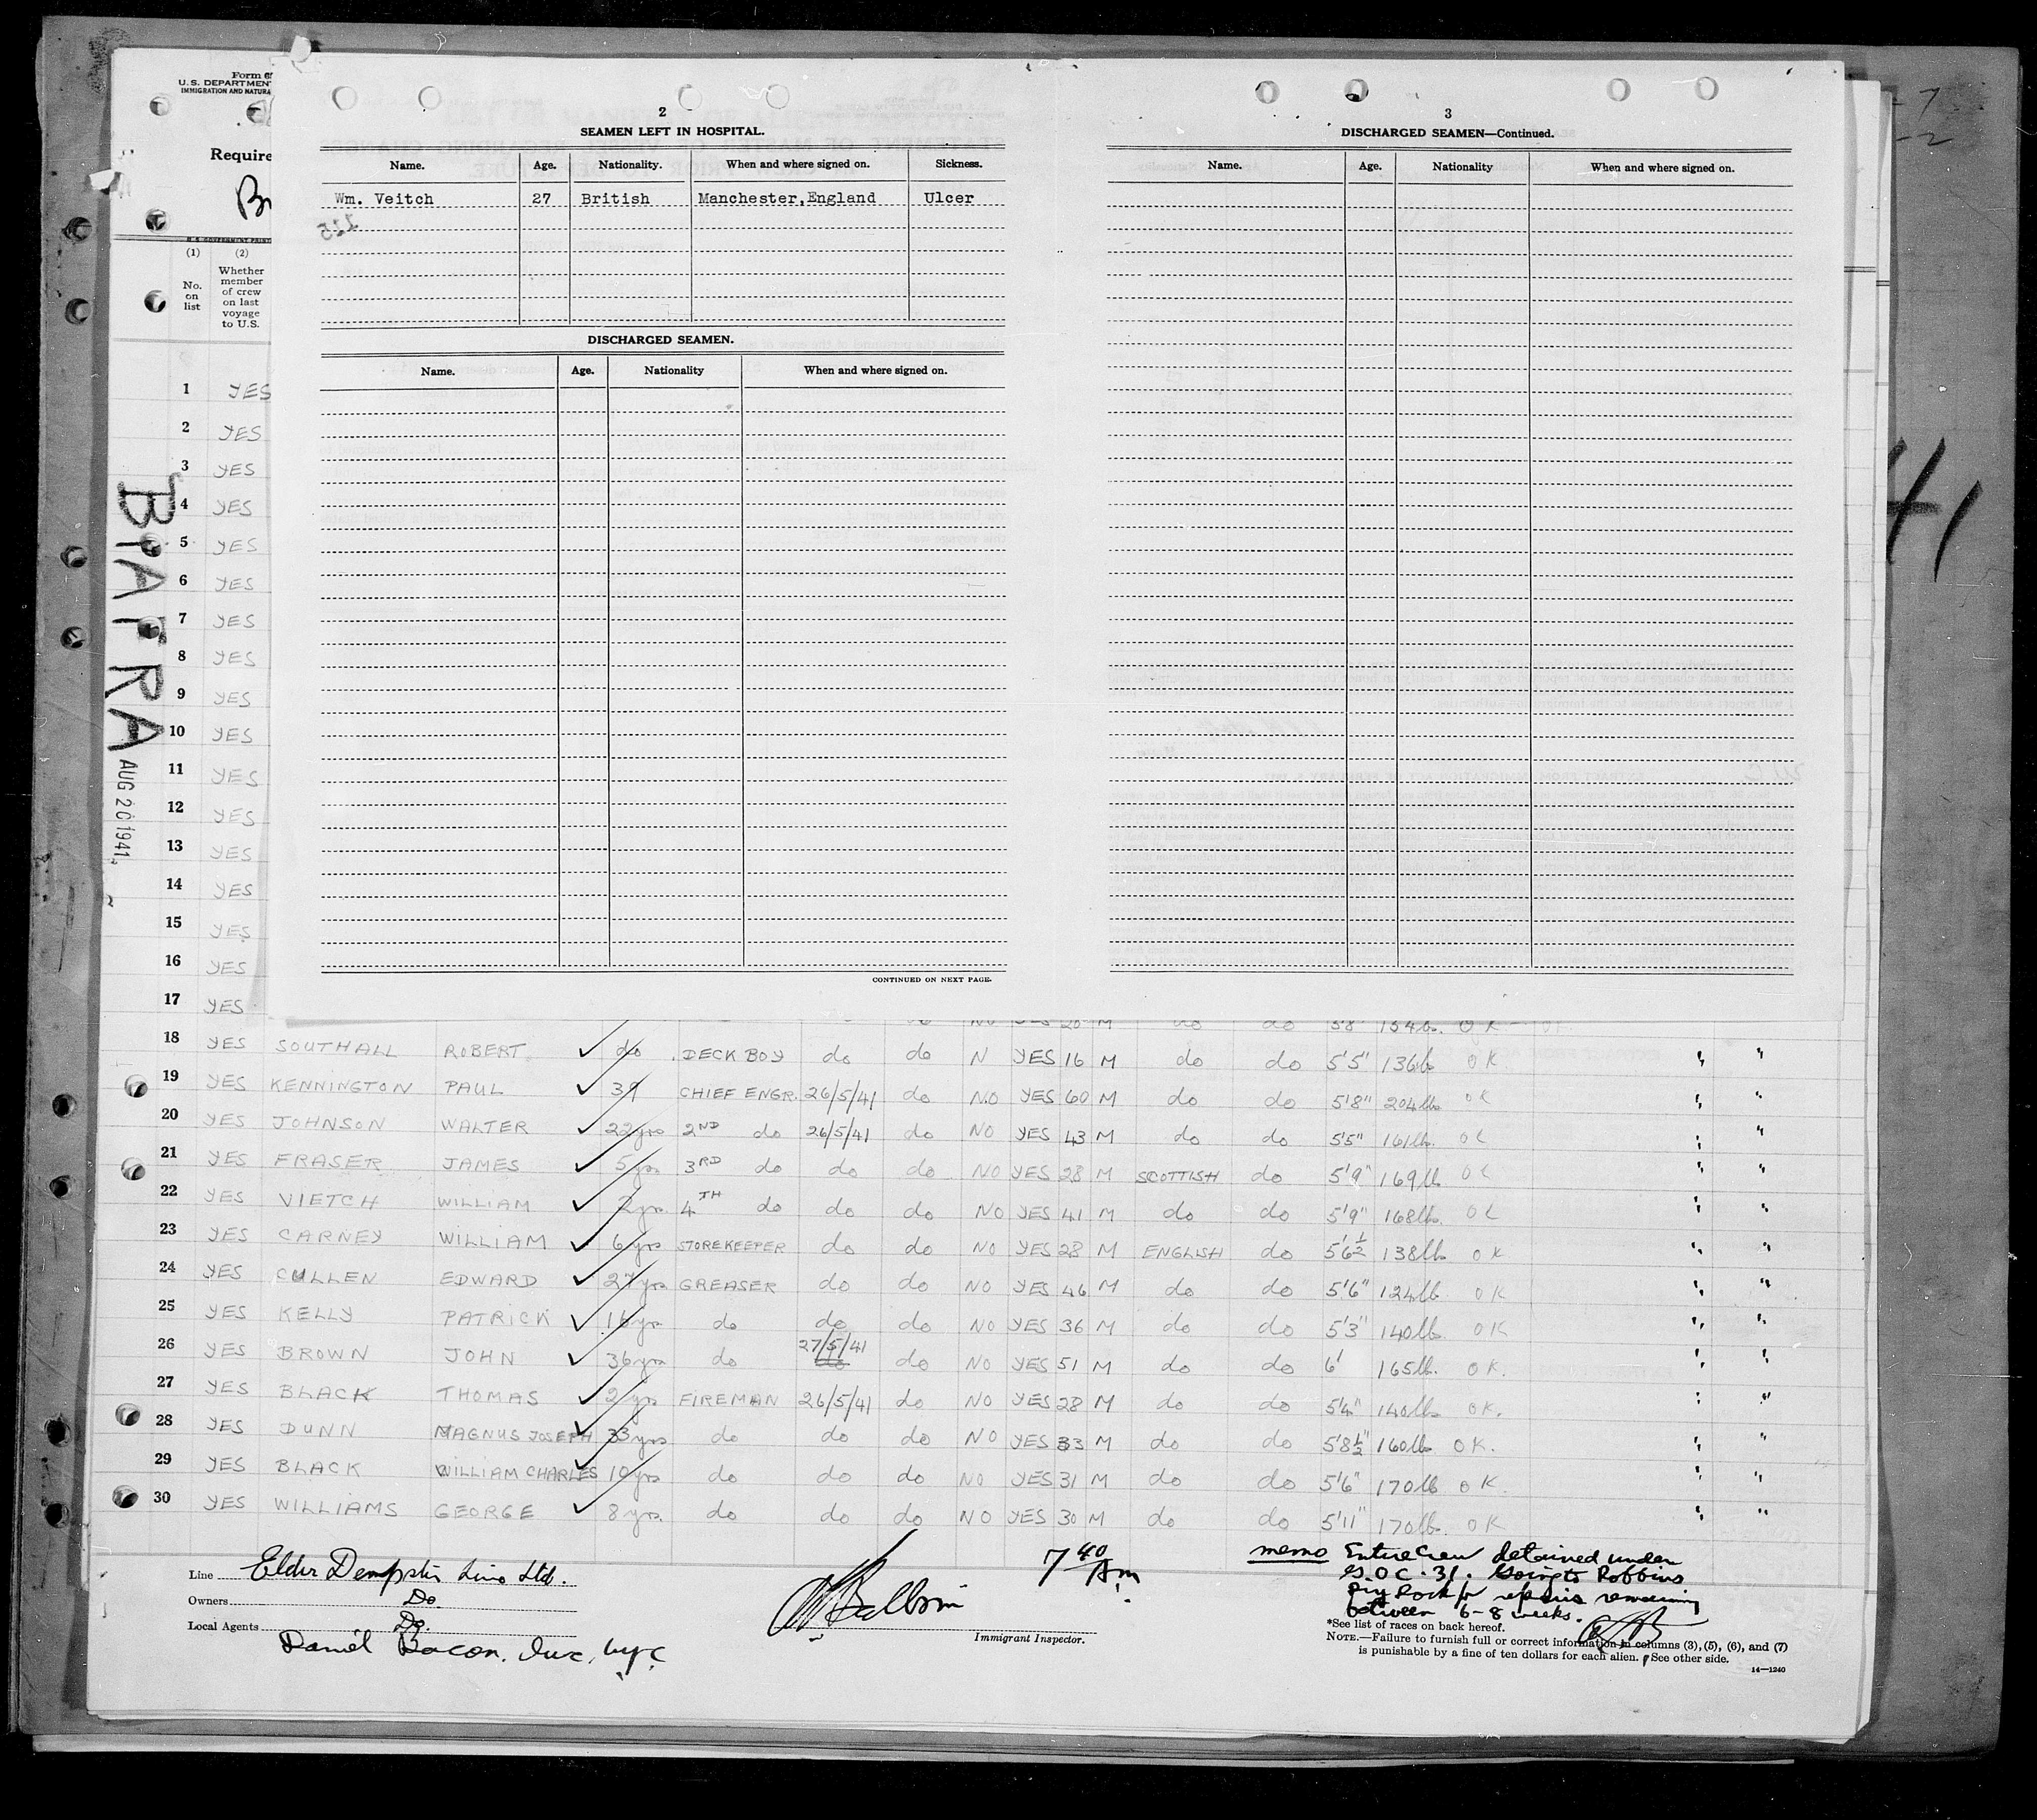 Form 6
U. S. DEPARTMEN
IMMIGRATION AND NATURA
Require
Br
U. S. GOVERNMENT PRINT
(1) (2)
No. on list
Whether member of crew on last voyage to U.S.
2
SEAMEN LEFT IN HOSPITAL.
Name. Age. Nationality. When and where signed on. Sickness.
Wm. Veitch 27 British Manchester,England Ulcer
225
DISCHARGED SEAMEN.
Name. Age. Nationality When and where signed on.
CONTINUED ON NEXT PAGE.
3
DISCHARGED SEAMEN—Continued.
Name. Age. Nationality When and where signed on.
41
BIAFRA
AUG 20 1941
1 YES
2 YES
3 YES
4 YES
5 YES
6 YES
7 YES
8 YES
9 YES
10 YES
11 YES
12 YES
13 YES
14 YES
15 YES
16 YES
17 YES do NO YES 20 M do do 5'8" 154lb. OK
18 YES SOUTHALL ROBERT do DECK BOY do do N YES 16 M do do 5'5" 136lb OK
19 YES KENNINGTON PAUL 39 CHIEF ENGR. 26/5/41 do NO YES 60 M do do 5'8" 204lbs OK
20 YES JOHNSON WALTER 22yrs 2ND do 26/5/41 do NO YES 43 M do do 5'5" 161lb. OK
21 YES FRASER JAMES 5yrs 3RD do do do NO YES 28 M SCOTTISH do 5'9" 169lb OK
22 YES VIETCH WILLIAM 2yrs 4TH do do do NO YES 41 M do do 5'9" 168lbs. OK
23 YES CARNEY WILLIAM 6yrs STOREKEEPER do do NO YES 28 M ENGLISH do 5'6½ 138lb OK
24 YES CULLEN EDWARD 27yrs GREASER do do NO YES 46 M do do 5'6" 124lb OK
25 YES KELLY PATRICK 16yrs do do do NO YES 36 M do do 5'3" 140lb OK
26 YES BROWN JOHN 36yrs do 27/5/41 do NO YES 51 M do do 6' 165lb. OK.
27 YES BLACK THOMAS 2yrs FIREMAN 26/5/41 do NO YES 28 M do do 5'4" 140lb OK.
28 YES DUNN MAGNUS JOSEPH 33yrs do do do NO YES 33 M do do 5'8½" 160lb OK.
29 YES BLACK WILLIAM CHARLES 10yrs do do do NO YES 31 M do do 5'6" 170lb OK.
30 YES WILLIAMS GEORGE 8yrs. do do do NO YES 30 M do do 5'11" 170lb. OK
Line Elder Dempster Line Ltd.
Owners Do.
Local Agents Do.
Daniel Bacon, Inc, NYC
7 40 Am
Immigrant Inspector.
memo Entire Crew detained under
G.O C-31. Going to Robbins
Dry Dock for repairs remaining
between 6-8 weeks.
*See list of races on back hereof.
NOTE.—Failure to furnish full or correct information in columns (3), (5), (6), and (7)
is punishable by a fine of ten dollars for each alien. See other side.
14—1240